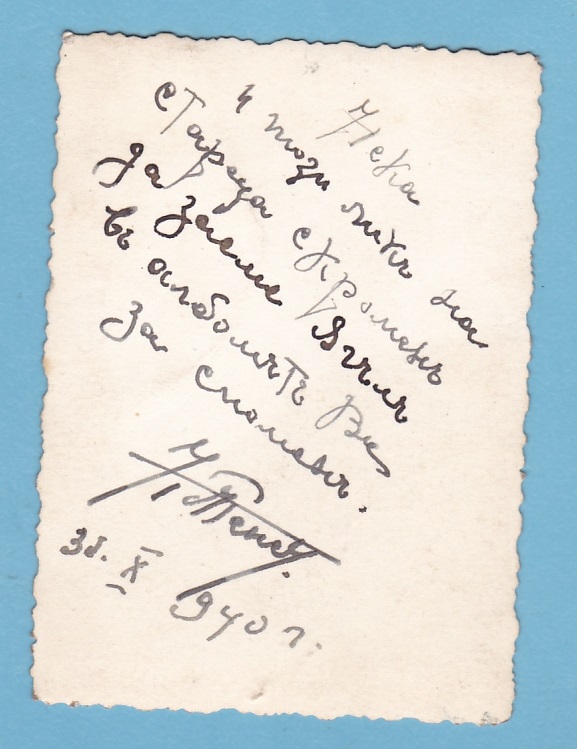 Нека
и този ликъ на
стареца скроменъ
да заеме ѫгълъ
въ албомътъ Ви
за споменъ.
X 940 г.